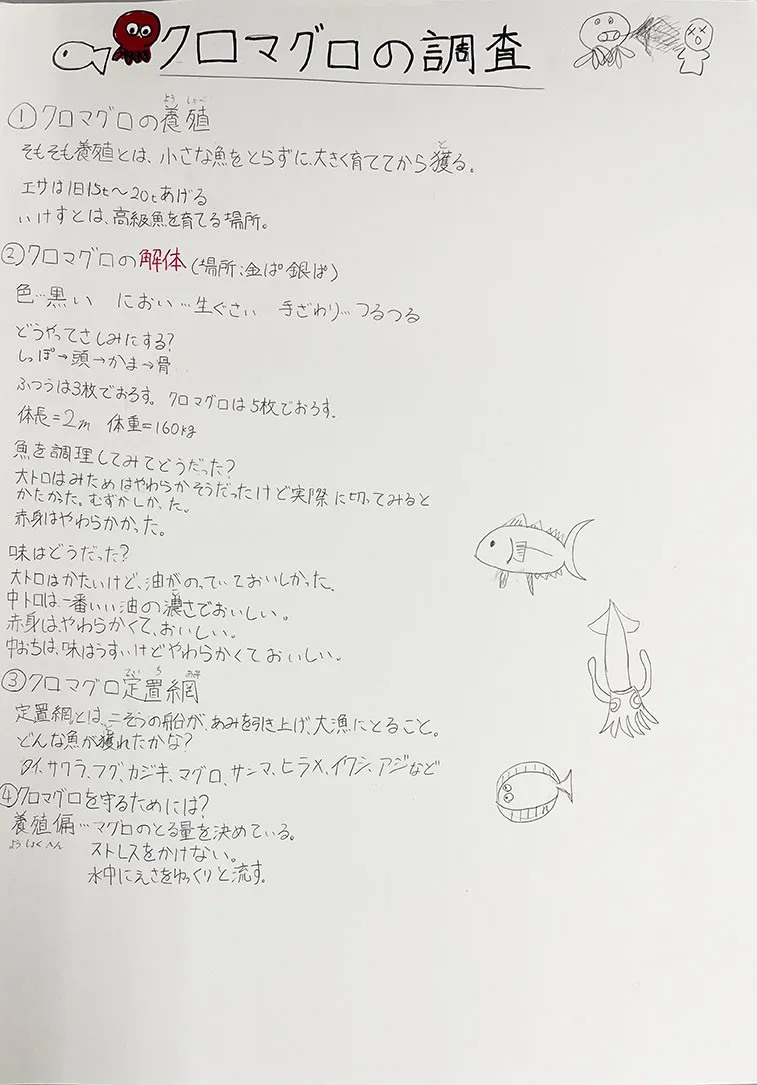 クロマグロの調査
①クロマグロの養殖
ようしょく
そもそも養殖とは、小さな魚をとらずに、大きく育ててから獲る。
と
エサは1日15t〜20tあげる
いけすとは、高級魚を育てる場所。
②クロマグロの解体(場所:金ぱ銀ぱ)
色…黒い におい…生ぐさい 手ざわり…つるつる
どうやってさしみにする?
しっぽ→頭→かま→骨
ふつうは3枚でおろす。クロマグロは5枚でおろす。
体長=2m 体重=160kg
魚を調理してみてどうだった?
大トロはみためはやわらかそうだったけど実際に切ってみると
かたかった。むずかしかった。
赤身はやわらかかった。
味はどうだった?
大トロはかたいけど、油がのっていておいしかった。
中トロは、一番いい油の濃さでおいしい。
こ
赤身は、やわらかくて、おいしい。
中おちは、味はうすいけどやわらかくておいしい。
③クロマグロ定置網
ていちあみ
定置網とは、二そうの船が、あみを引き上げ、大漁にとること。
どんな魚が獲れたかな?
と
タイ、サワラ、フグ、カジキ、マグロ、サンマ、ヒラメ、イワシ、アジなど
④クロマグロを守るためには?
養殖偏…マグロのとる量を決めている。
ようしょくへん
ストレスをかけない。
水中にえさをゆっくりと流す。